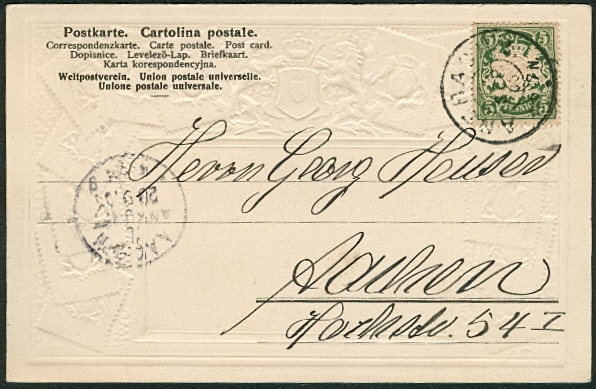 Postkarte. Cartolina postale.
Correspondenzkarte. Carte postale. Post card.
Dopisnice. Levelezö-Lap. Briefkaart.
Karta korespondencyjna.
Weltpostverein. Union postale universelle.
Unione postale universale.
5 5
5 5
Herrn Georg Heuser
Aachen
54 I